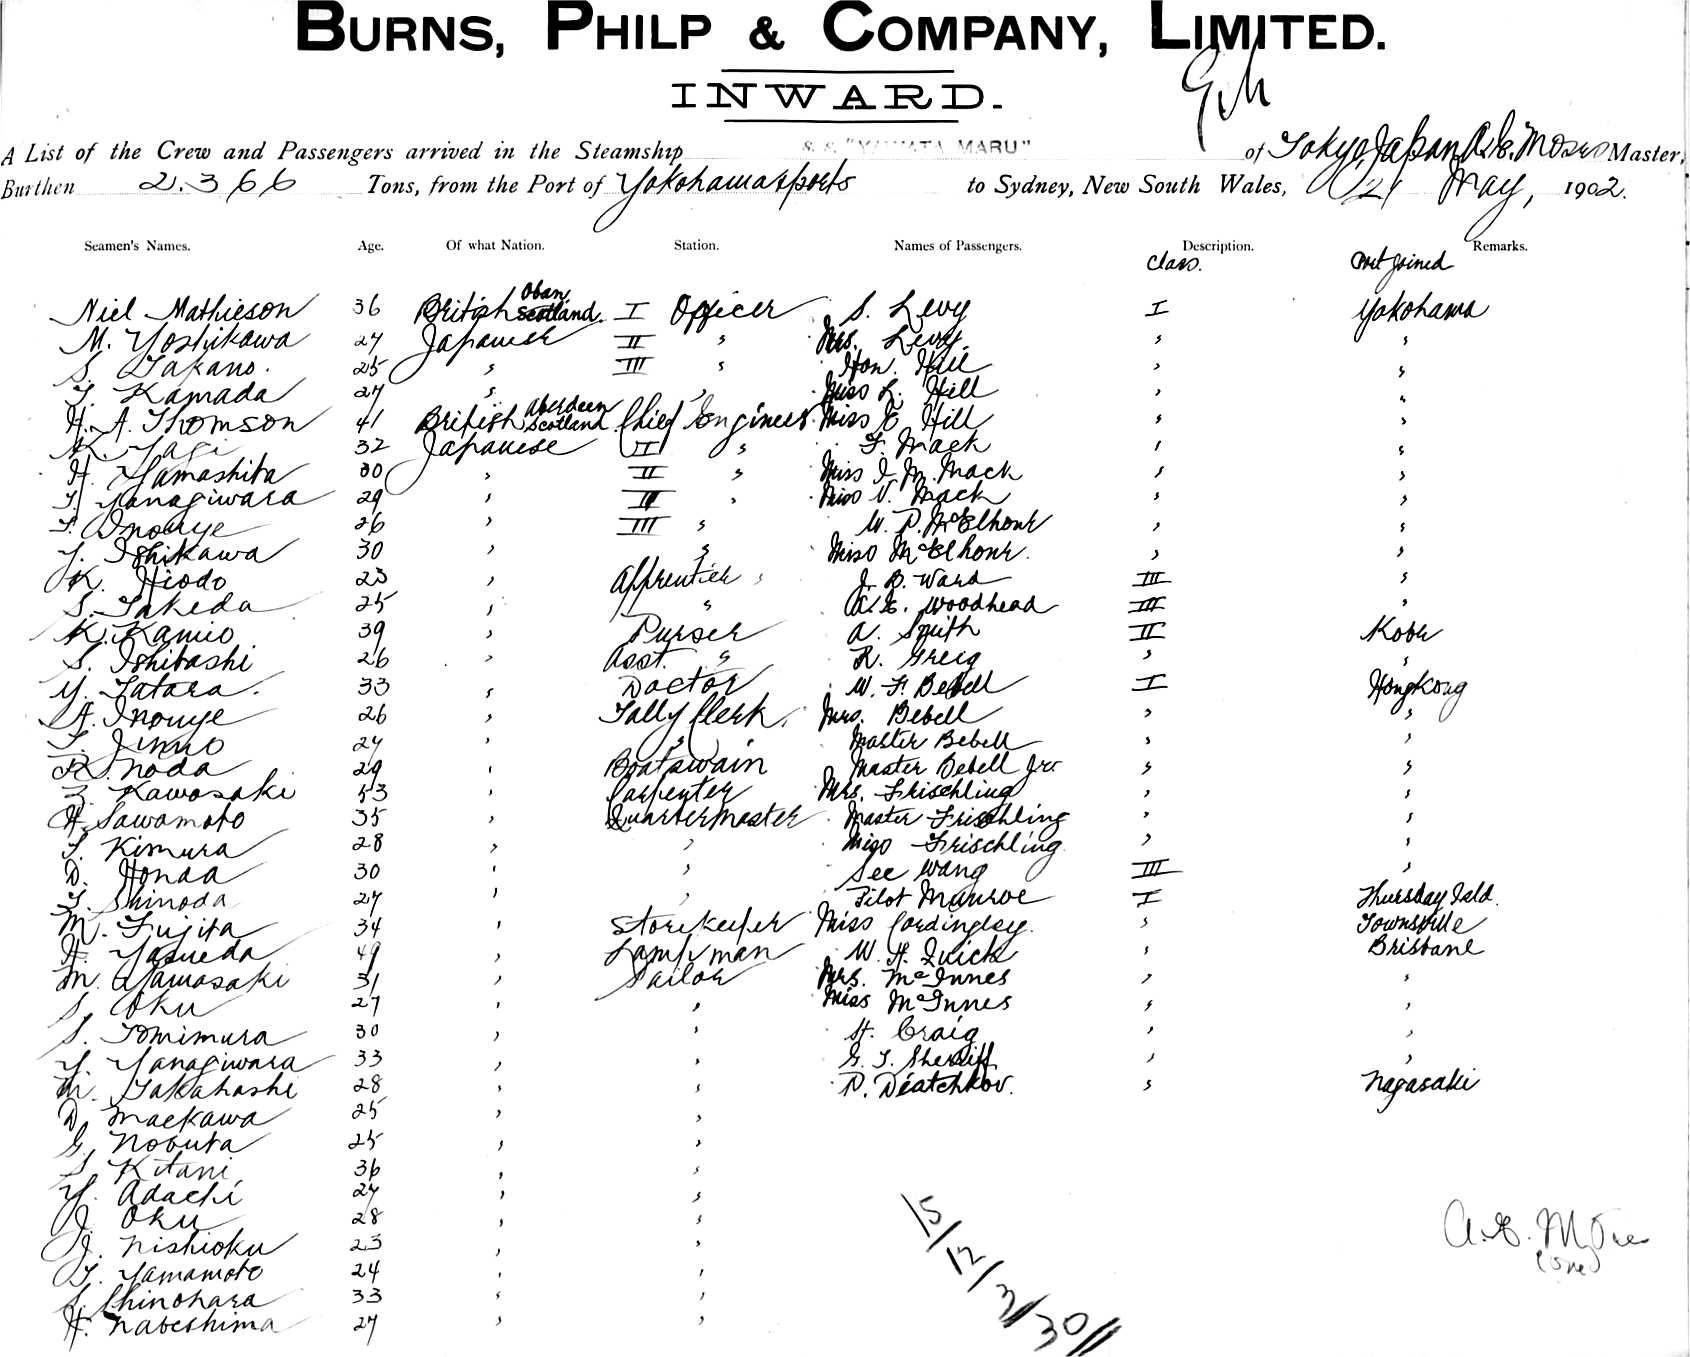 BURNS, PHILP & COMPANY, LIMITED.
INWARD.
A List of the Crew and Passengers arrived in the Steamship S.S. "YAWATA MARU" of Tokyo, Japan A.E. Moses Master,
Burthen 2.366 Tons, from the Port of Yokohama & ports to Sydney, New South Wales, 21 May, 1902.
Seamen's Names. Age. Of what Nation. Station. Names of Passengers. Description. Remarks.
Class. Port joined
Niel Mathieson 36 British Oban Scotland. I Officer S. Levy I Yokohama
M. Yoshikawa 27 Japanese II " Mrs. Levy. " "
S. Takano. 25 " III " Hon. Hill " "
T. Kamada 27 " " Miss L. Hill " "
H. A. Thomson 41 British Aberdeen Scotland Chief Engineer Miss E Hill " "
K. Yagi 32 Japanese II " F. Mack " "
H. Yamashita 30 " II " Miss I. M. Mack " "
T. Yanagiwara 29 " III " Miss V. Mack " "
T. Inouye 26 " III " W. P. McElhone " "
Y. Ishikawa 30 " " Miss McElhone. " "
K. Hiodo 23 " Apprentice " J. B. Ward III "
S. Takeda 25 " " A.E. Woodhead III "
K. Kamio 39 " Purser A. Smith II Kobe
S. Ishibashi 26 " Asst. " R. Greig " "
Y. Tatara. 33 " Doctor W. F. Bebell I Hongkong
A. Inouye 26 " Tally Clerk. Mrs. Bebell " "
T. Jimbo 27 " " Master Bebell " "
R. Noda 29 " Boatswain Master Bebell Jnr. " "
Z. Kawasaki 53 " Carpenter Mrs. Frischling " "
H. Sawamoto 35 " Quartermaster Master Frischling " "
T. Kimura 28 " " Miss Frischling " "
D. Honda 30 " " See Wang III "
T. Shinoda 27 " " Pilot Munroe I Thursday Isld.
M. Fujita 34 " Storekeeper Miss Cordingley. " Townsville
H. Yasueda 49 " Lampman W. H. Quick " Brisbane
M. Yamasaki 31 " Sailor Mrs. McInnes " "
S. Oku 27 " " Miss McInnes " "
S. Tomimura 30 " " H. Craig " "
Y. Yanagiwara 33 " " G. T. Sherriff " "
M. Takahashi 28 " " P. Diatchkov. " Nagasaki
D. Maekawa 25 " "
G. Nobuta 25 " "
S. Kitani 36 " "
Y. Adachi 27 " "
J. Oku 28 " "
J. Nishioku 23 " "
T. Yamamoto 24 " "
S. Shinohara 33 " "
H. Nabeshima 27 " "
15/12/3/30//